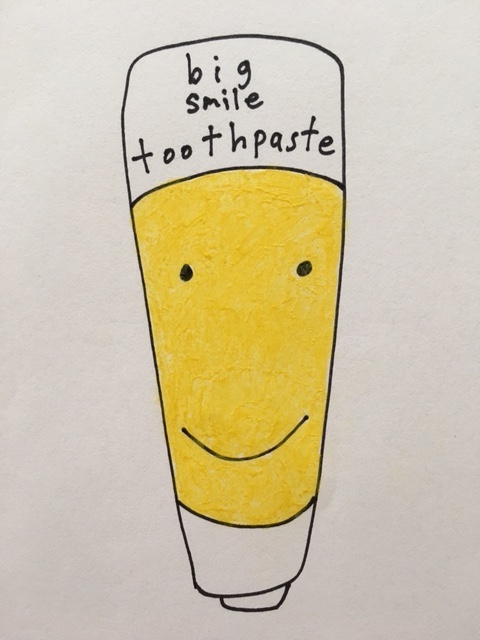 big
smile
toothpaste